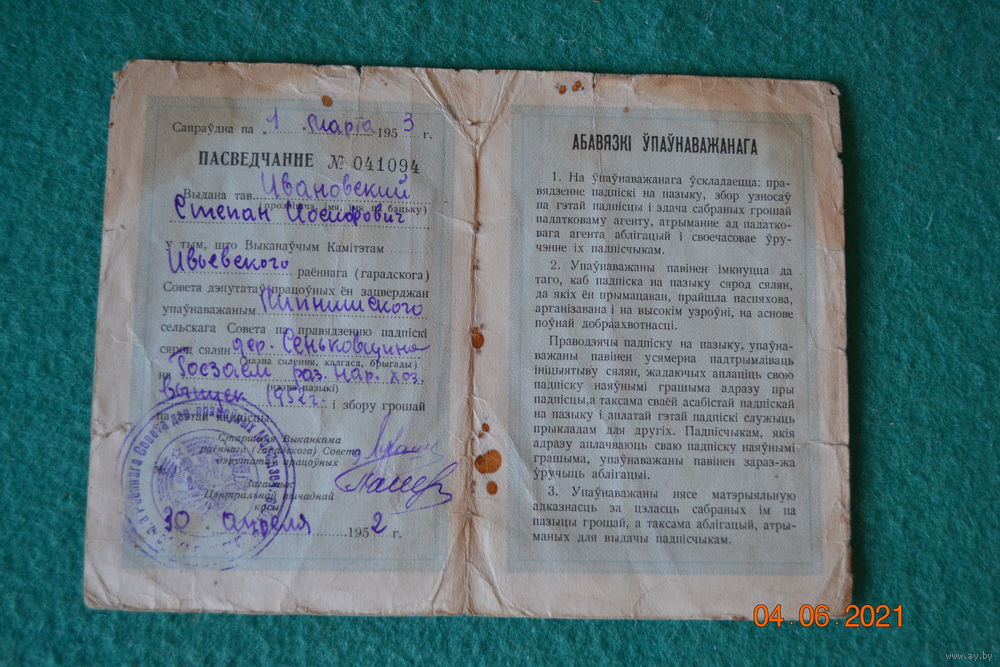 Сапраўдна па „1“ марта 1953 г.
ПАСВЕДЧАННЕ № 041094
Выдана тав. Ивановский
(прозвішча, імя, імя па бацьку)
Степан Иосифович
у тым, што Выканаўчым Камітэтам
Ивьевского раённага (гарадскога)
Совета дэпутатаў працоўных ён зацверджан
упаўнаважаным Липнишского
сельскага Совета па правядзенню падпіскі
сярод сялян дер. Сеньковщина
(назва сялення, калгаса, брыгады)
на Госзаем раз. нар. хоз.
(назва пазыкі)
выпуск 1952 г. і збору грошай
па гэтай падпісцы.
Старшыня Выканкома
раённага (гарадскога) Совета
дэпутатаў працоўных
Загадчык
Цэнтральнай ашчаднай
касы
30 апреля 1952 г.
АБАВЯЗКІ ЎПАЎНАВАЖАНАГА
1. На ўпаўнаважанага ўскладаецца: пра-
вядзенне падпіскі на пазыку, збор узносаў
па гэтай падпісцы і здача сабраных грошай
падатковаму агенту, атрыманне ад падатко-
вага агента аблігацый і своечасовае ўру-
чэнне іх падпісчыкам.
2. Упаўнаважаны павінен імкнуцца да
таго, каб падпіска на пазыку сярод сялян,
да якіх ён прымацаван, прайшла паспяхова,
арганізавана і на высокім узроўні, на аснове
поўнай добраахвотнасці.
Праводзячы падпіску на пазыку, упаўна-
важаны павінен усямерна падтрымліваць
ініцыятыву сялян, жадаючых аплаціць сваю
падпіску наяўнымі грашыма адразу пры
падпісцы, а таксама сваёй асабістай падпіскай
на пазыку і аплатай гэтай падпіскі служыць
прыкладам для другіх. Падпісчыкам, якія
адразу аплачваюць сваю падпіску наяўнымі
грашыма, упаўнаважаны павінен зараз-жа
ўручыць аблігацыі.
3. Упаўнаважаны нясе матэрыяльную
адказнасць за цэласць сабраных ім па
пазыцы грошай, а таксама аблігацый, атры-
маных для выдачы падпісчыкам.
04.06.2021
www.ay.by